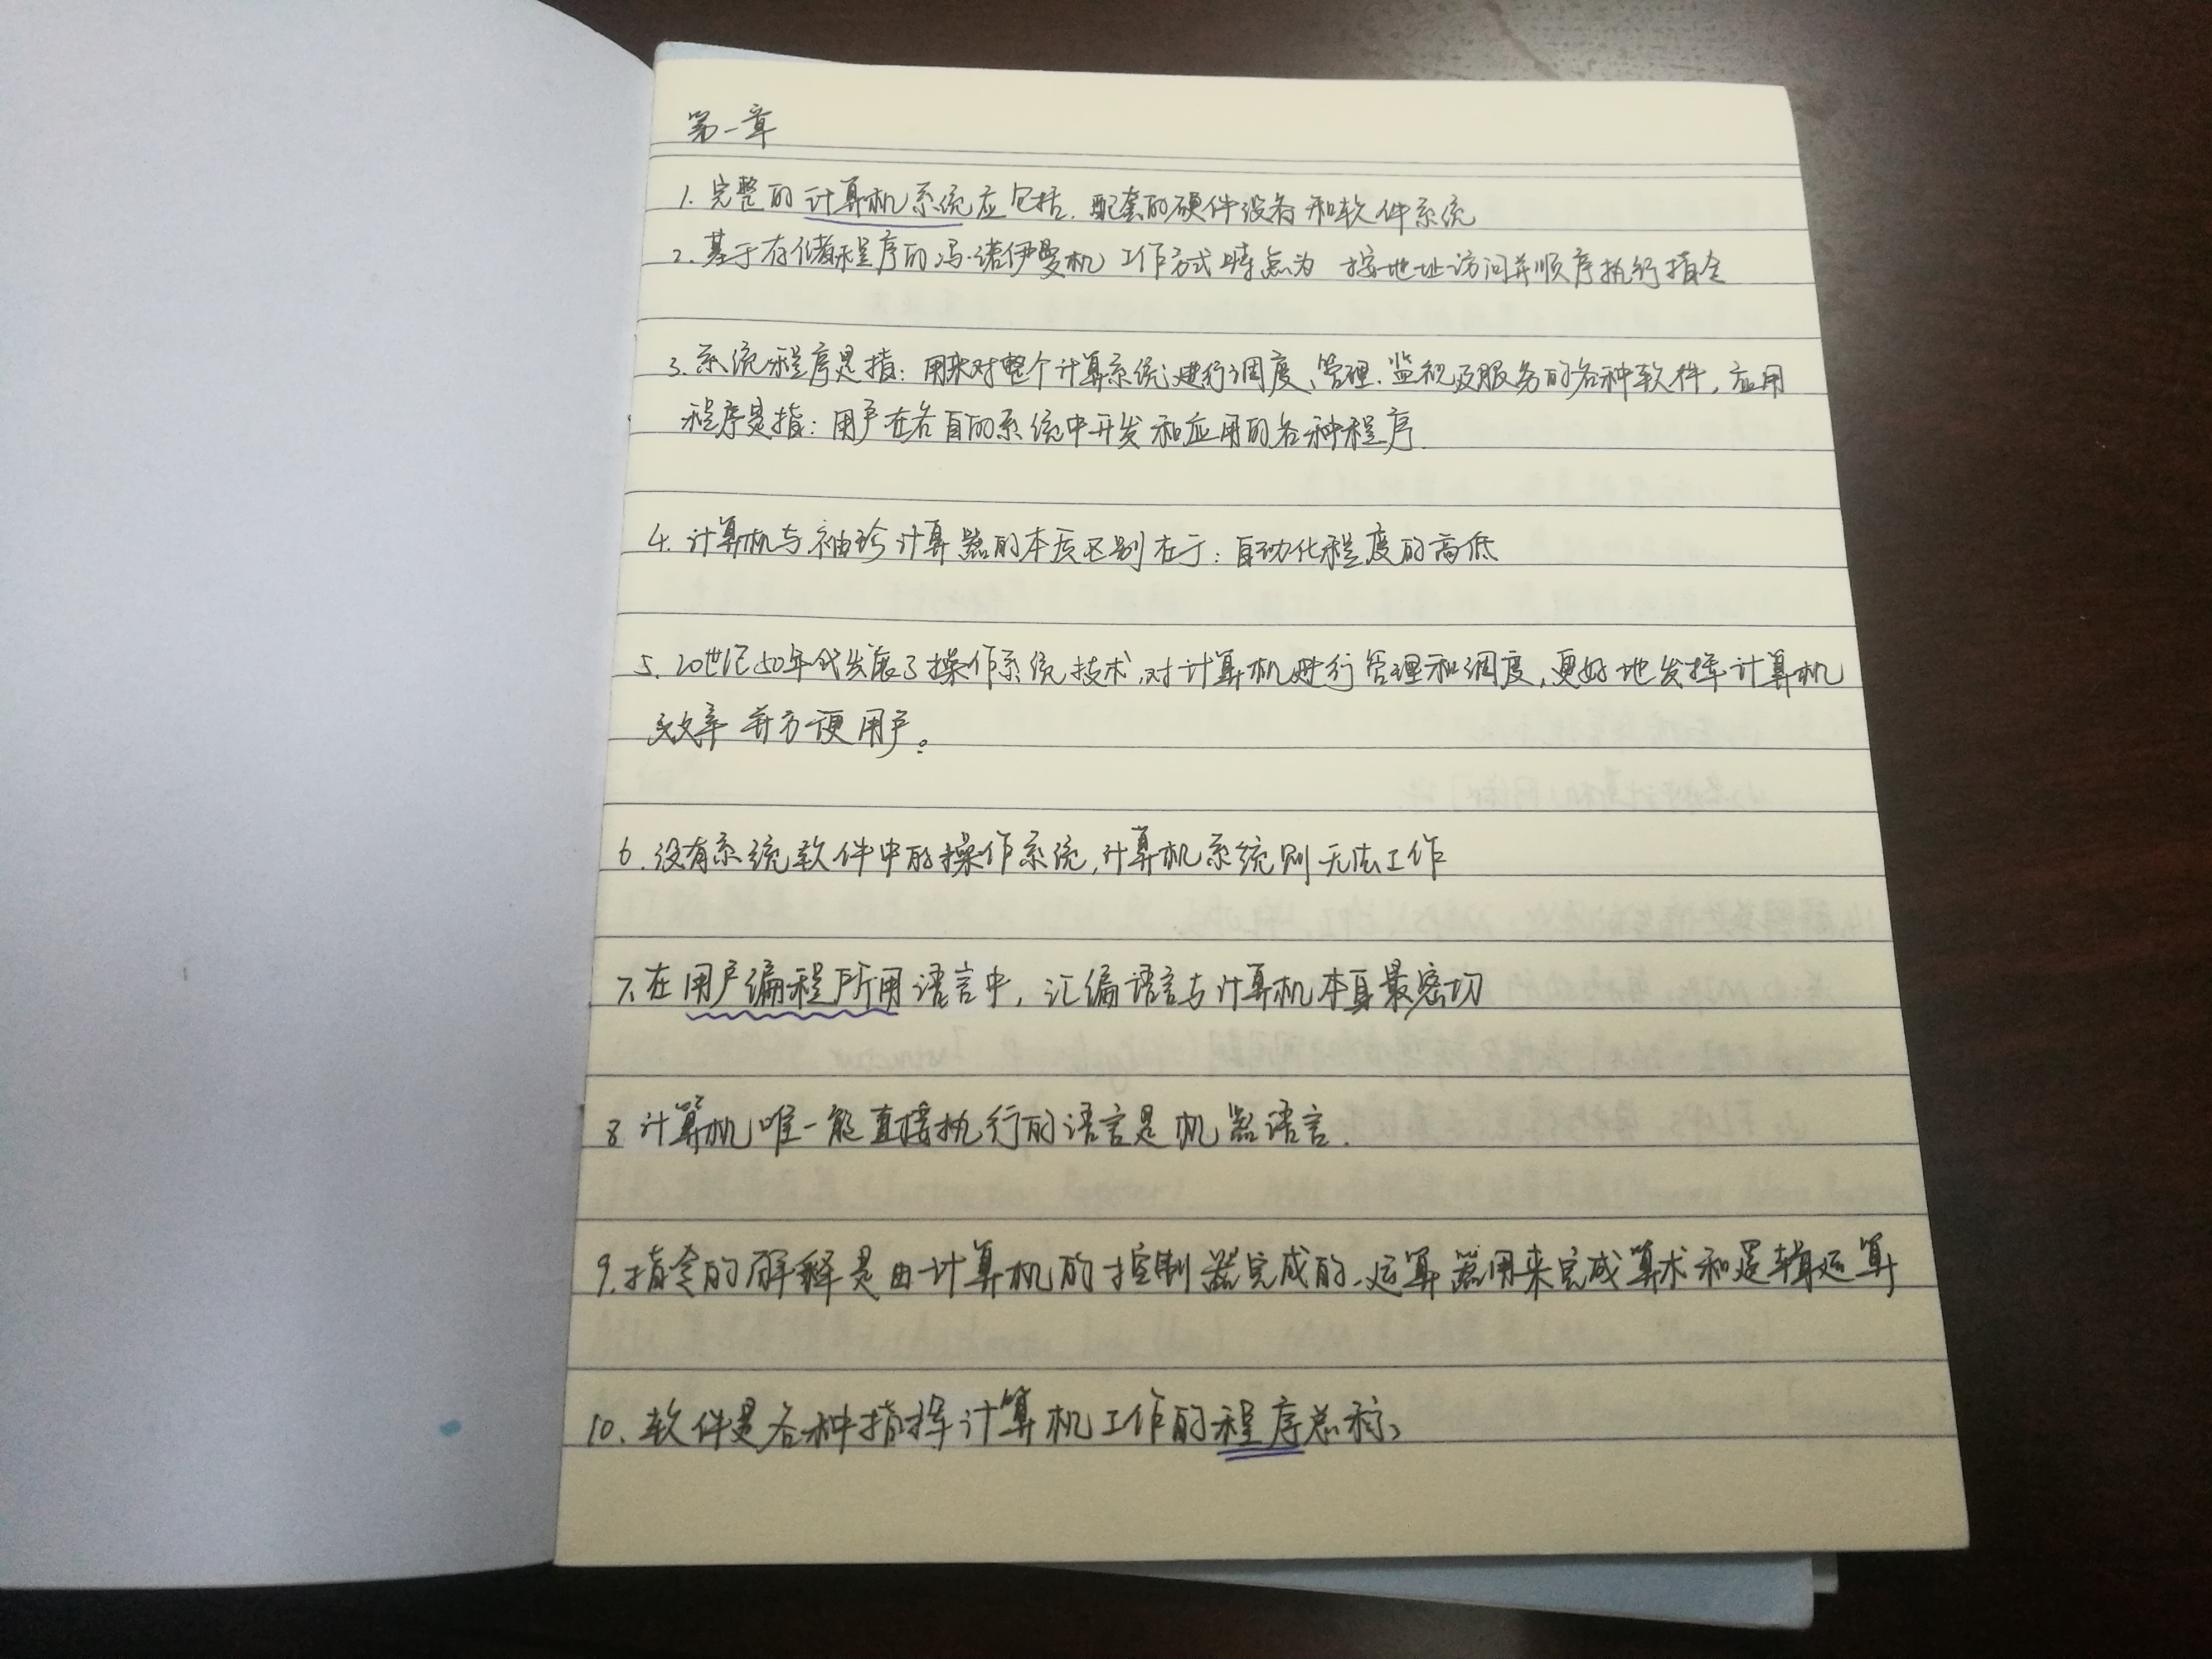 第一章
1. 完整的计算机系统应包括. 配套的硬件设备和软件系统
2. 基于存储程序的冯·诺伊曼机 工作方式特点为 按地址访问并顺序执行指令
3. 系统程序是指: 用来对整个计算系统进行调度、管理. 监视及服务的各种软件, 应用
程序是指: 用户在各自的系统中开发和应用的各种程序.
4. 计算机与袖珍计算器的本质区别在于: 自动化程度的高低
5. 20世纪50年代发展了操作系统技术, 对计算机进行管理和调度, 更好地发挥计算机
效率 并方便用户。
6. 没有系统软件中的操作系统, 计算机系统则无法工作
7. 在用户编程所用语言中, 汇编语言与计算机本身最密切
8 计算机唯一能直接执行的语言是机器语言.
9. 指令的解释是由计算机的控制器完成的. 运算器用来完成算术和逻辑运算
10. 软件是各种指挥计算机工作的程序总称,